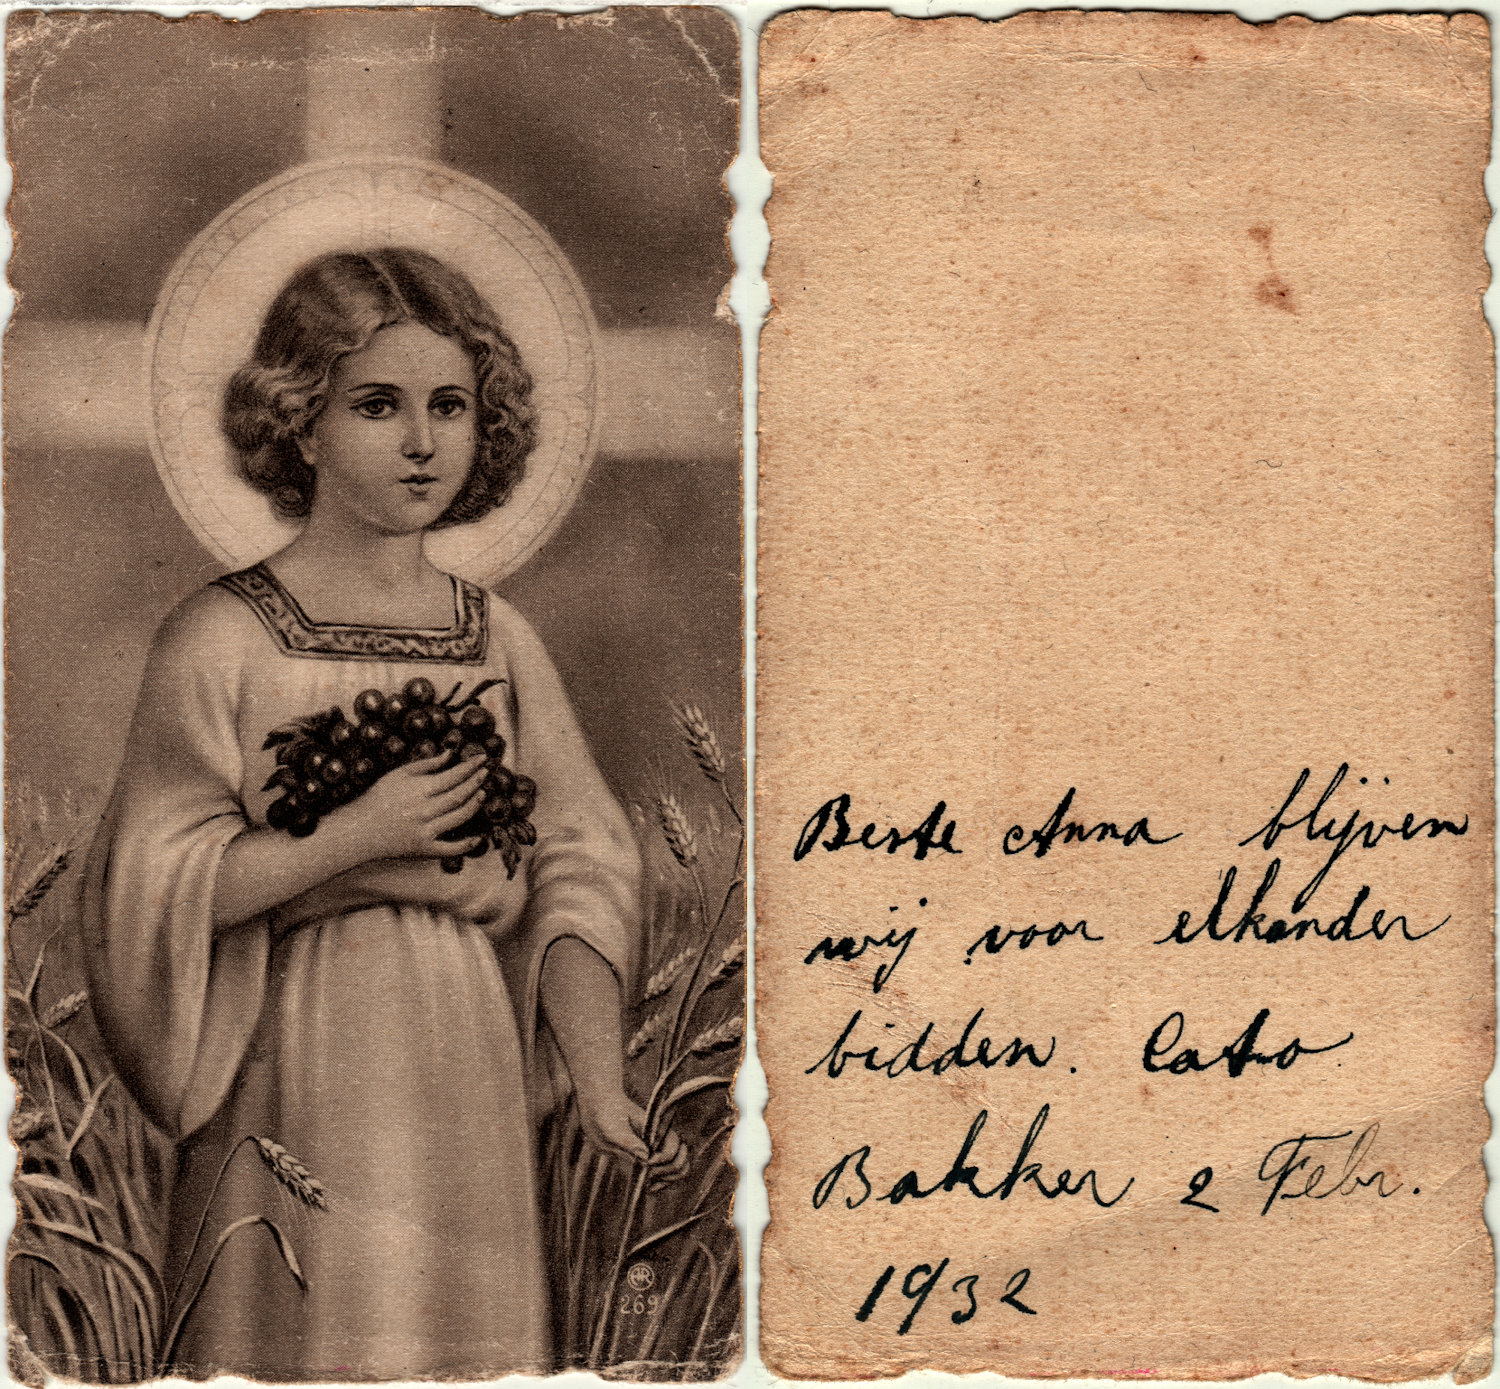 269
Beste Anna blijven
wij voor elkander
bidden. Cato
Bakker 2 Febr.
1932